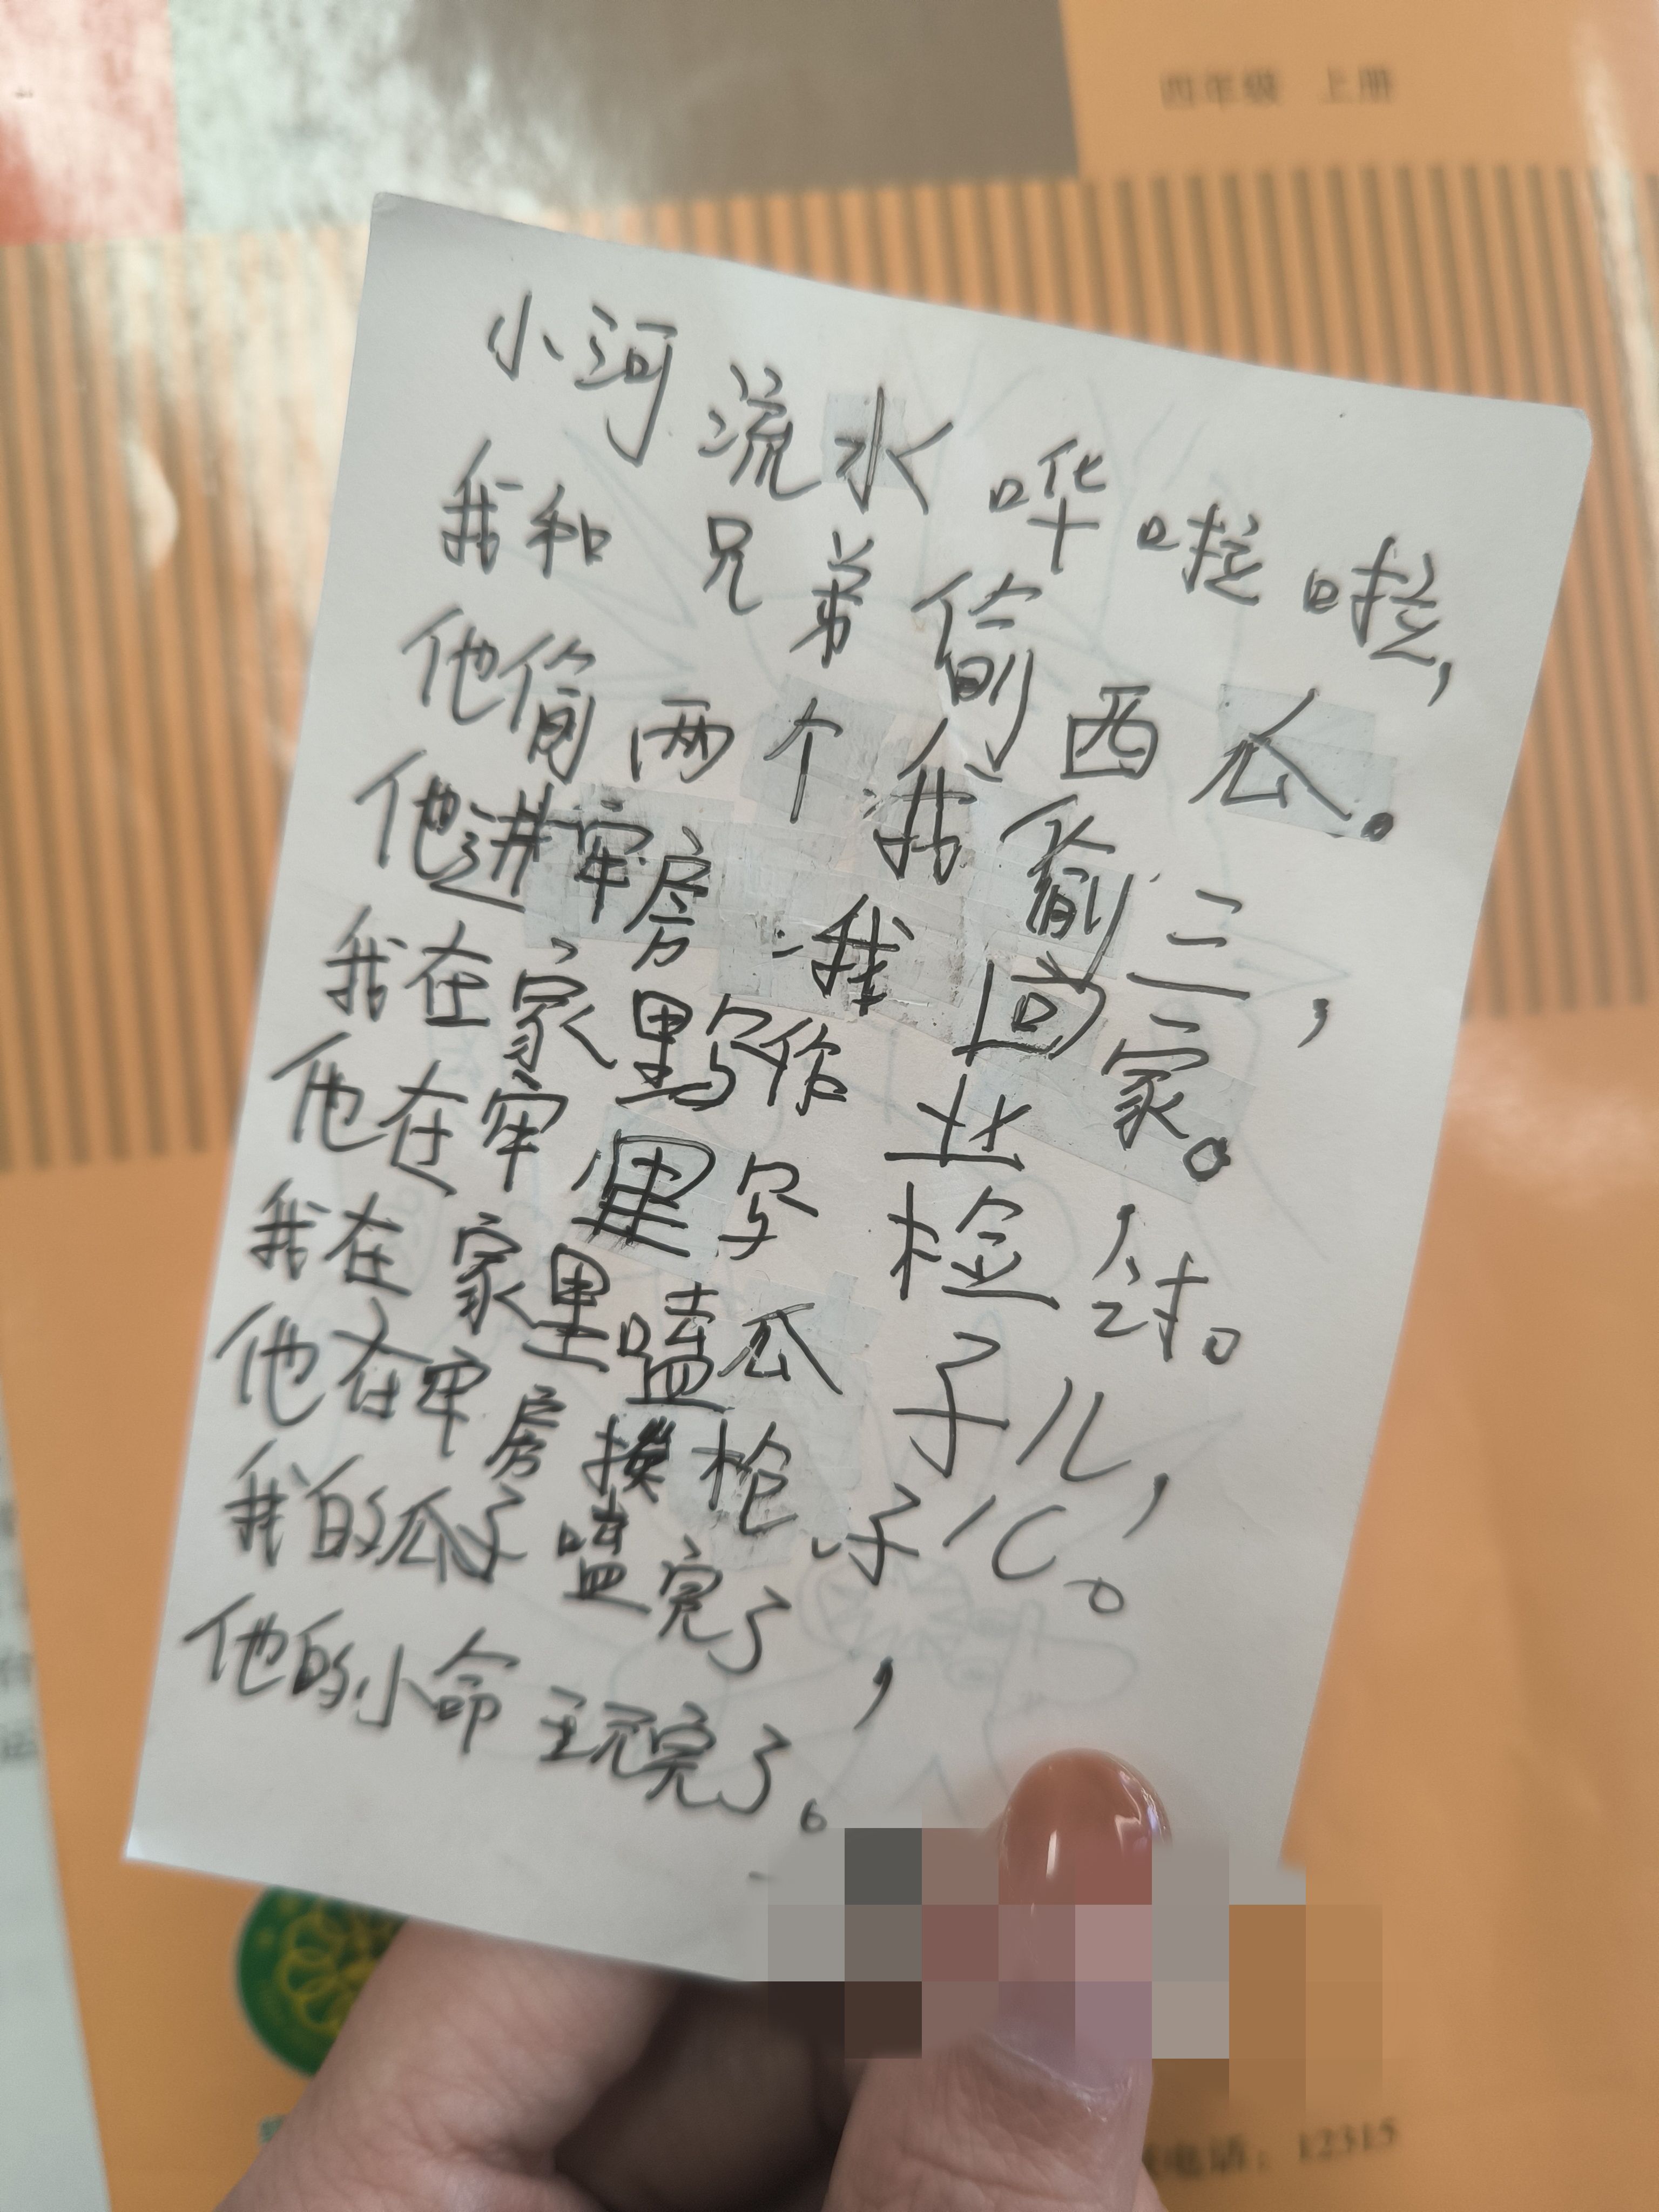 四年级 上册
小河流水哗啦啦，
我和兄弟偷西瓜。
他偷两个我偷三，
他进牢房我回家。
我在家里写作业，
他在牢里写检讨。
我在家里嗑瓜子儿，
他在牢房摸枪子儿。
我的瓜子嗑完了，
他的小命玩完了。
电话：12315